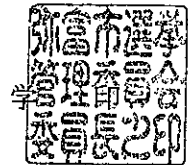 弥富市選挙
管理委員会
委員長之印
学